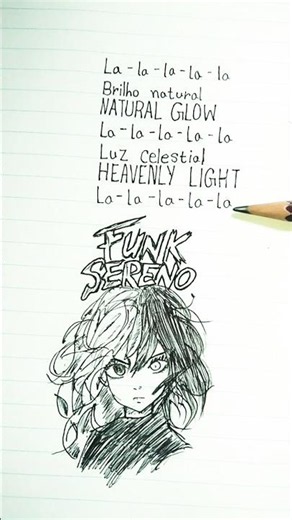 La-la-la-la-la
Brilho natural
NATURAL GLOW
La-la-la-la-la
Luz celestial
HEAVENLY LIGHT
La-la-la-la-la
FUNK
SERENO